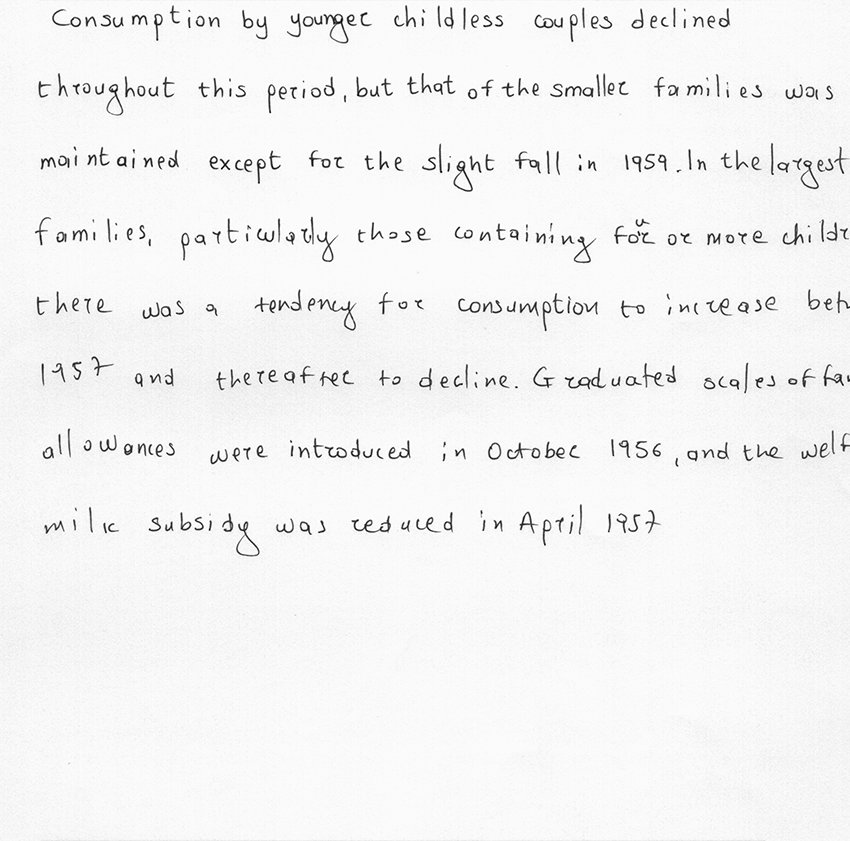 Consumption by younger childless couples declined
throughout this period, but that of the smaller families was
maintained except for the slight fall in 1959. In the largest
families, particularly those containing four or more childr
there was a tendency for consumption to increase bef
1957 and thereafter to decline. Graduated scales of fa
allowances were introduced in October 1956, and the welf
milk subsidy was reduced in April 1957